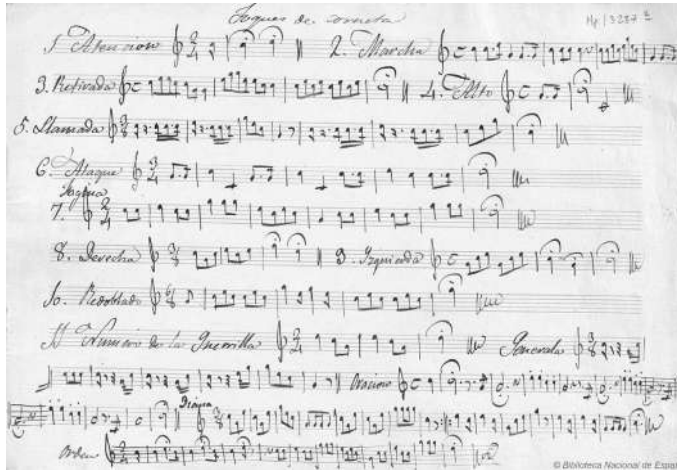 Toques de corneta
Mp/3287
1ª Atencion 2. Marcha
3. Retirada 4. Alto
5. Llamada
6. Ataque
Fagina
7.
8. Derecha 9. Izquierda
10. Redoblado
11 Número de la Guerrilla Generala
Oracion
Diana
Orden
© Biblioteca Nacional de Españ